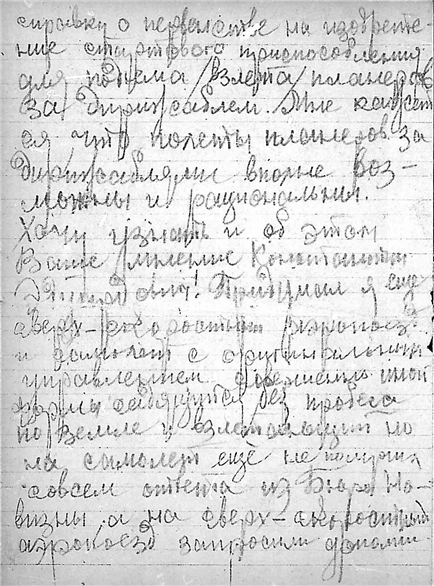 справку о первенстве на изобрете-
ние стартового приспособления
для подъема /взлета/ планеров
за дирижаблем. Мне кажет-
ся что полеты планеров за
дирижаблями вполне воз-
можны и рациональны.
Хочу узнать и об этом
Ваше мнение Константин
Придумал я еще
сверх-скоростной аэропоезд
и самолет с оригинальным
управлением
садящийся без пробега
по земле и взлетающий но
на самолет еще не получил
совсем ответа из Бюро Но-
визны а на сверх-скоростный
аэропоезд запросили